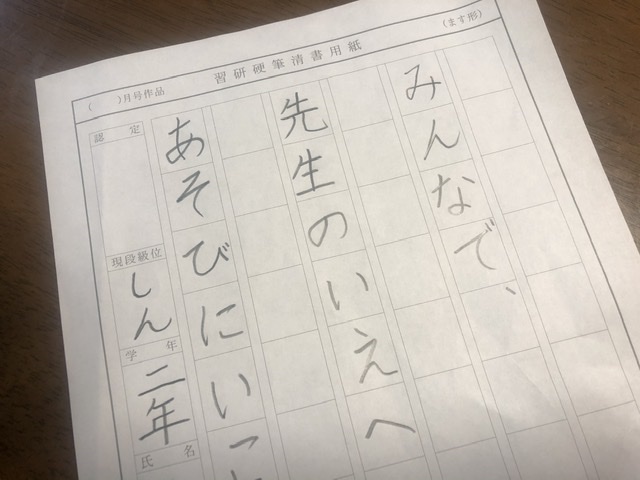 習研硬筆清書用紙
(ます形)
( )月号作品
みんなで、
先生のいえへ
あそびにいこ
認定
現段級位
しん
学年
二年
氏名